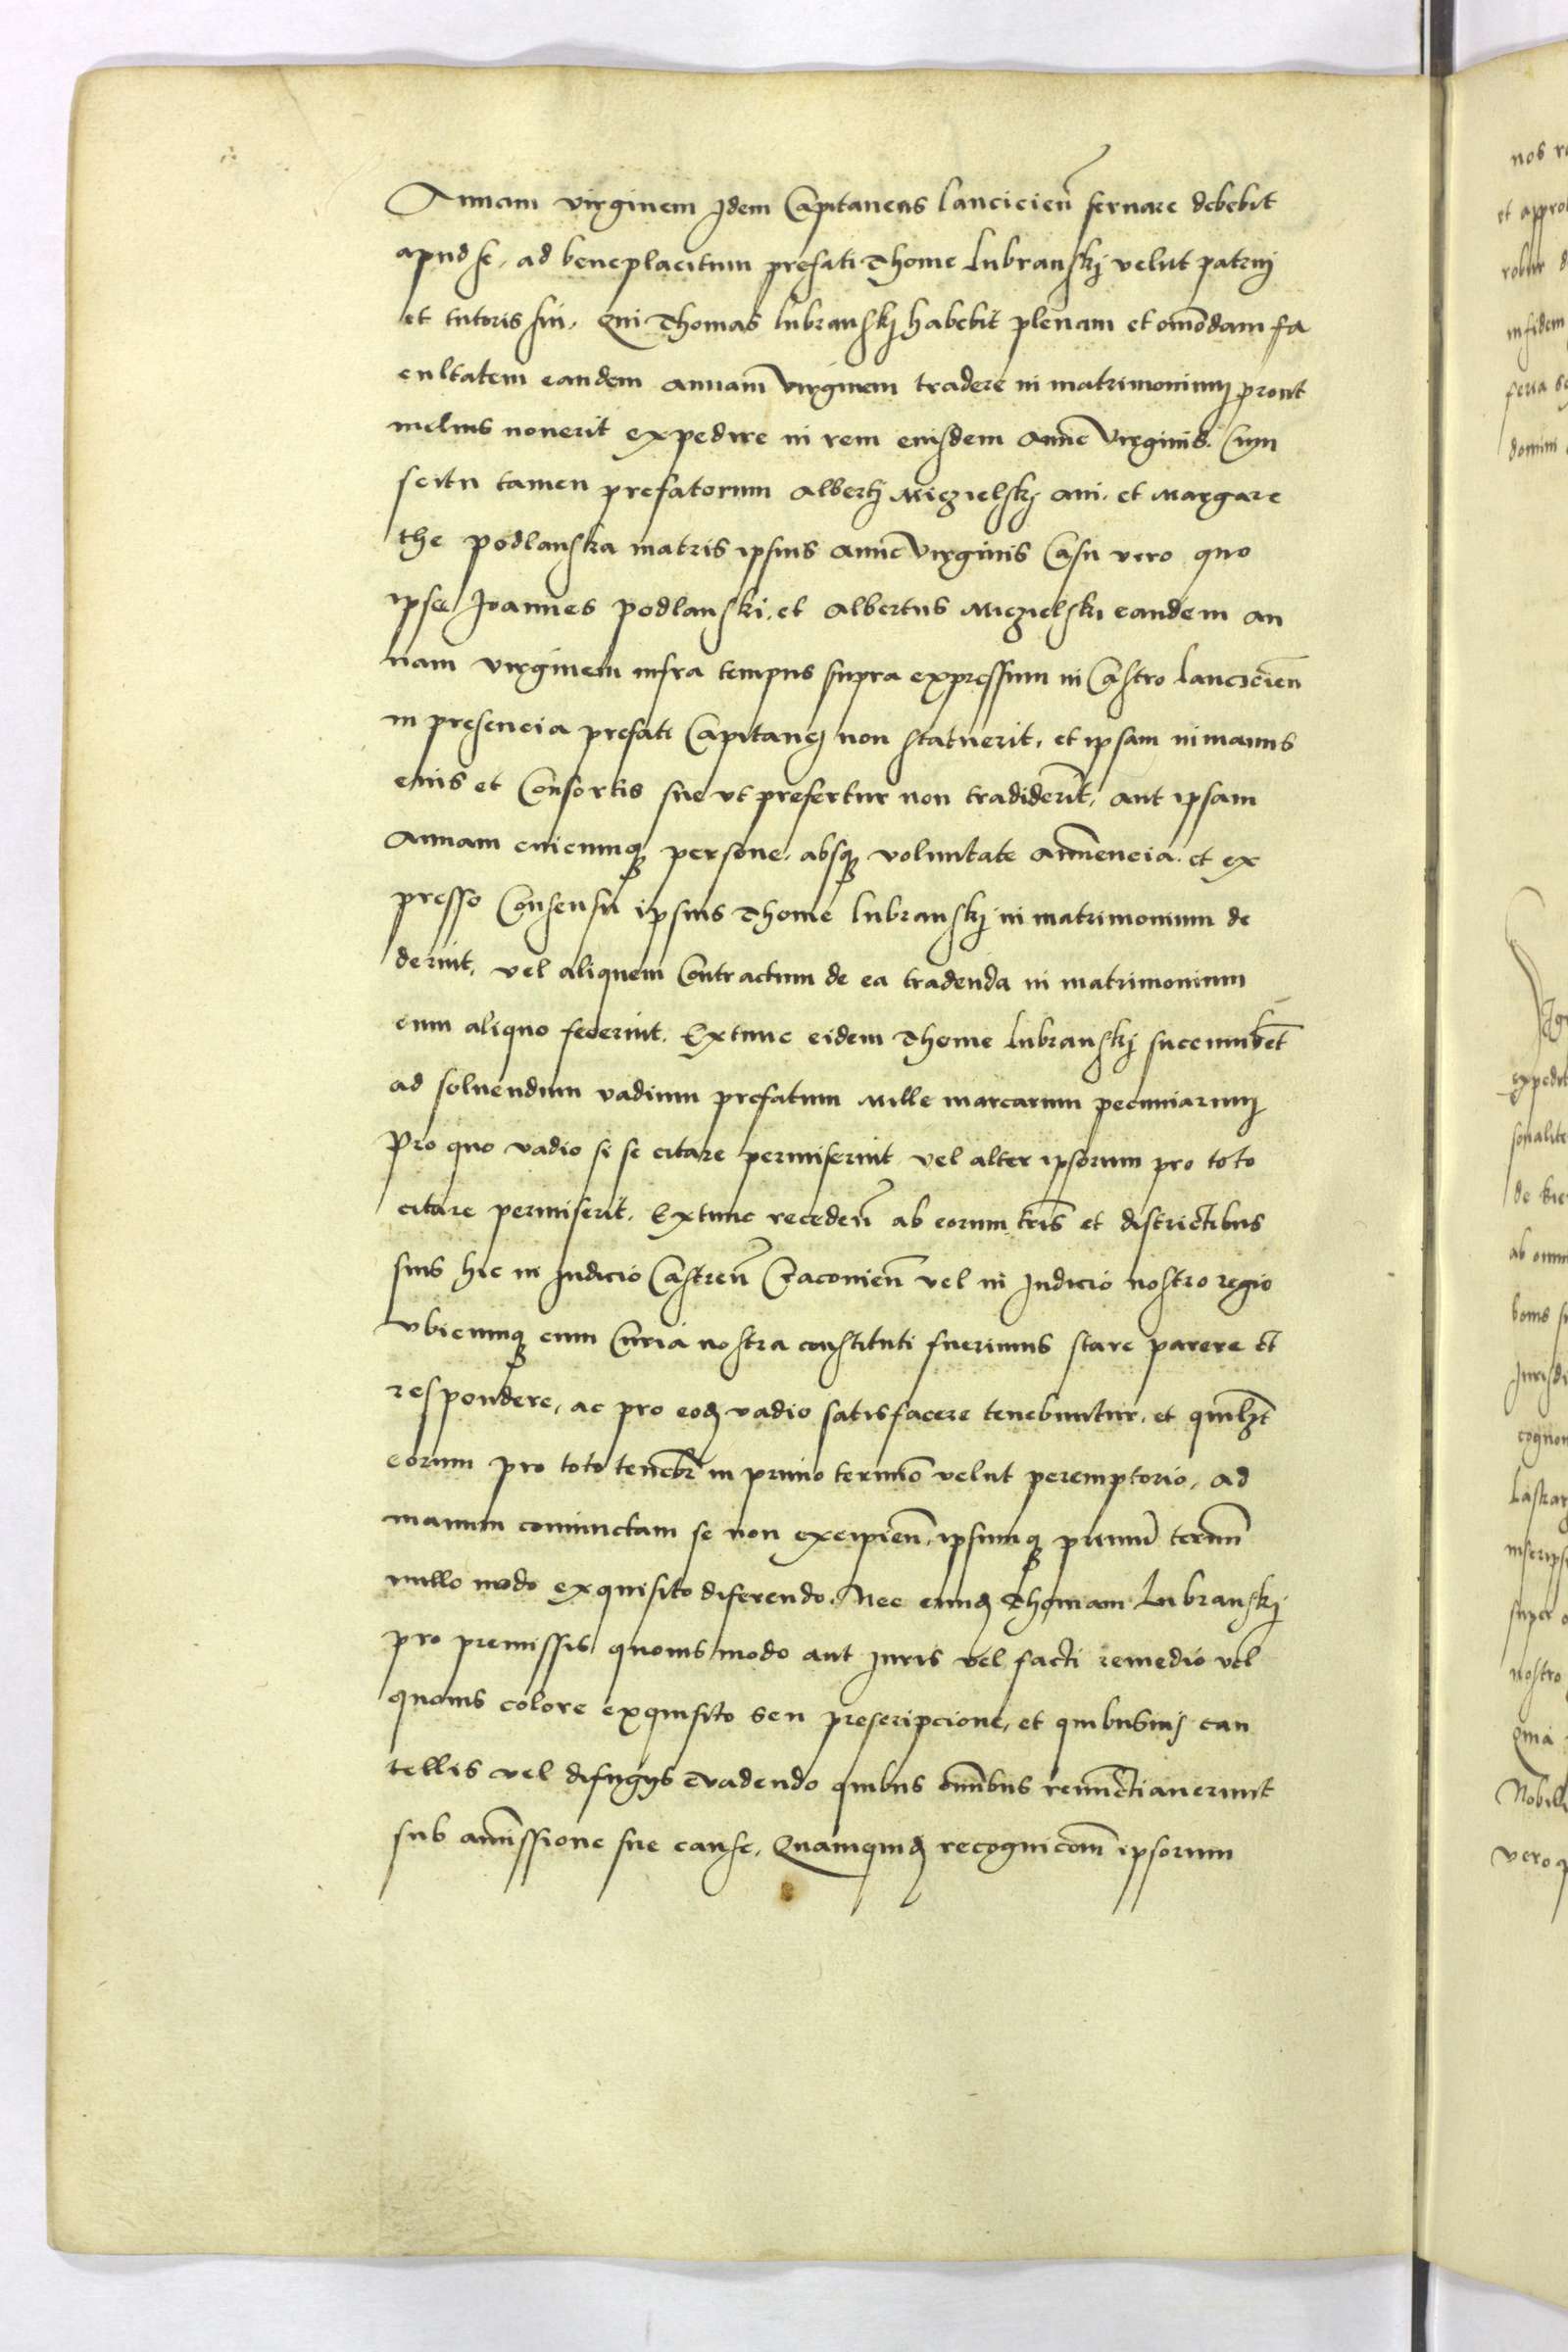 Annam virginem Idem Capitaneus lancicien̄ seruare debebit
apud se, ad beneplacitum prefati Thome Lubranskj velut patruj
et tutoris sui, Qui Thomas lubranskj habebit plenam et om̄odam fa
cultatem eandem annam virginem tradere in matrimonium prout
melius nouerit expedire in rem eiusdem Anne virginis. Cum
scitu tamen prefatorum Albertj Miczielskj aui, et Margare
the podlanska matris ipsius Anne virginis Casu vero quo
ipse Joannes podlanski, et Albertus Miczielski eandem an
nam virginem infra tempus supra expressum in Castro lancicien̄
in presencia prefati Capitanej non statuerit, et ipsam in manus
eius et Consortis sue vt prefertur non tradiderit, aut ipsam
Annam cuicumq₃ persone, absq₃ voluntate Anuencia, et ex
presso Consensu ipsius Thome lubranskj in matrimonium de
derint, vel aliquem Contractum de ea tradenda in matrimonium
cum aliquo fecerint. Extunc eidem Thome lubranskj succumbēt
ad soluendum vadium prefatum Mille marcarum pecuniarum
Pro quo vadio si se citare permiserint vel alter ipsorum pro toto
citare permiserit. Extunc receden̄ ab eorum tr̄is et districtibus
suis hic in Judicio Castren̄ Cracouien̄ vel in Judicio nostro regio
vbicumq₃ cum Curia nostra constituti fuerimus stare parere et
respondere, ac pro eod₃ vadio satisfacere tenebuntur, et quilz̄t
eorum pro toto teneb̄r in primo termīo velut peremptorio, ad
manum coniunctam se non excipien̄, ipsumq₃ primū termīn
nullo modo exquisito diferendo. Nec eund₃ Thomam Lubranskj
pro premissis quouis modo aut Juris vel facti remedio vel
quouis colore exquisito seu prescripcione, et quibusuis cau
tellis vel difugijs euadendo quibus om̄ibus renūctiauerunt
sub amissione sue cause, Quamquid₃ recognicōm ipsorum